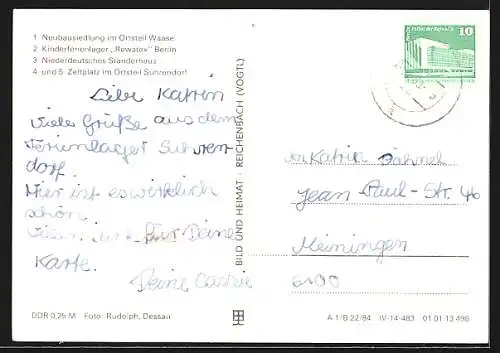 1 Neubausiedlung im Ortsteil Waase
2 Kinderferienlager „Rewatex" Berlin
3 Niederdeutsches Ständerhaus
4 und 5 Zeltplatz im Ortsteil Suhrendorf
Liebe Katrin
viele Grüße aus dem
Ferienlager Suhren
dorf.
Hier ist es wirklich
schön.
für Deine
Karte.
Deine
DDR 0,25 M Foto: Rudolph, Dessau
BILD UND HEIMAT · REICHENBACH (VOGTL)
10
Katrin
Jean Paul-Str. 46
Meiningen
6100
A 1/B 22/84 IV-14-483 01 01 13 496